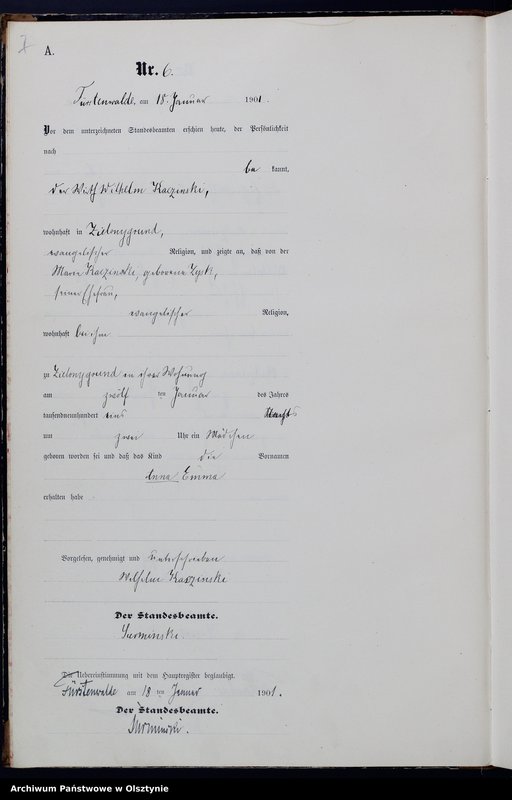 A.
Nr. 6.
Fürstenwalde, am 18. Januar 1901.
Vor dem unterzeichneten Standesbeamten erschien heute, der Persönlichkeit
nach
be kannt,
der Wirth Wilhelm Kaczinski,
wohnhaft in Zielonygrund,
evangelischer Religion, und zeigte an, daß von der
Marie Kaczinski, geborene Zysk,
seiner Ehefrau,
evangelischer Religion,
wohnhaft bei ihm
zu Zielonygrund in ihrer Wohnung
am zwölf ten Januar des Jahres
tausendneunhundert eins Nachts
um zwei Uhr ein Mädchen
geboren worden sei und daß das Kind die Vornamen
Anna Emma
erhalten habe
Vorgelesen, genehmigt und unterschrieben
Wilhelm Kaczinski
Der Standesbeamte.
Surminski
Die Uebereinstimmung mit dem Hauptregister beglaubigt.
Fürstenwalde am 18 ten Januar 1901.
Der Standesbeamte.
Surminski.
Archiwum Państwowe w Olsztynie